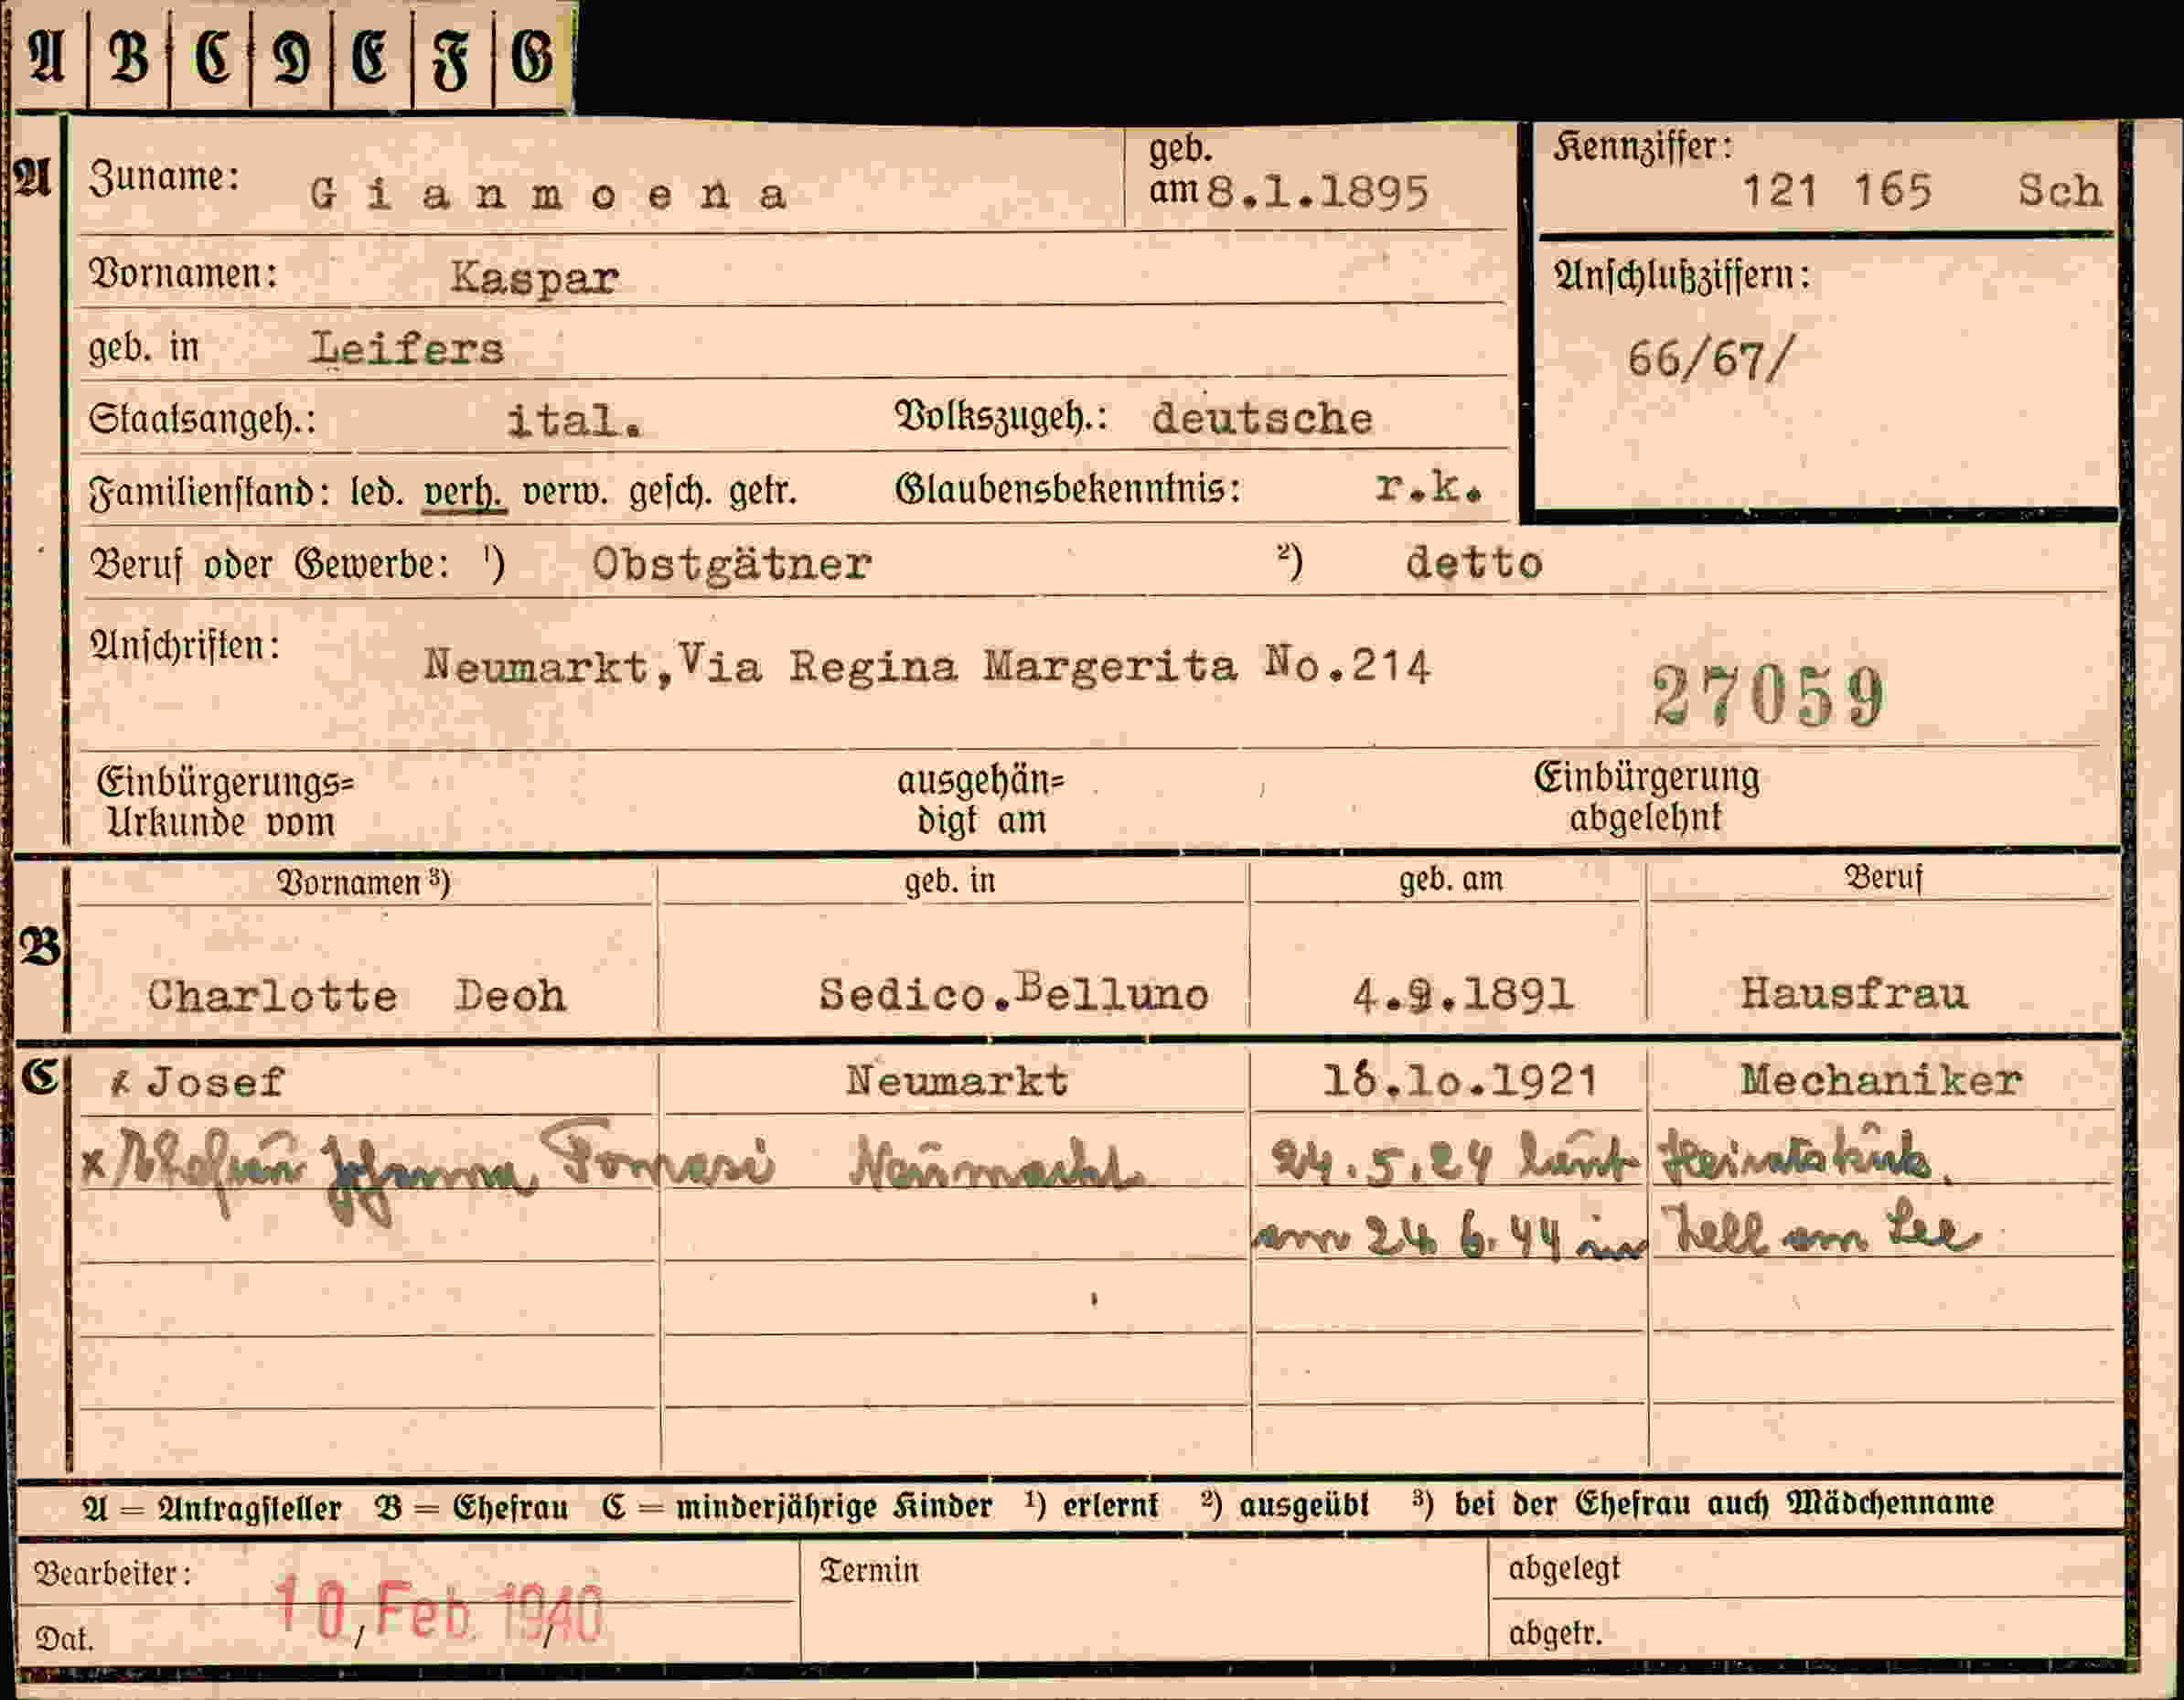 A B C D E F G
A Zuname: Gianmoena geb. am 8.1.1895 Kennziffer: 121 165 Sch
Vornamen: Kaspar Anschlußziffern:
geb. in Leifers 66/67/
Staatsangeh.: ital. Volkszugeh.: deutsche
Familienstand: led. verh. verw. gesch. getr. Glaubensbekenntnis: r.k.
Beruf oder Gewerbe: ¹) Obstgätner ²) detto
Anschriften: Neumarkt, Via Regina Margerita No.214
27059
Einbürgerungs= ausgehän= Einbürgerung
Urkunde vom digt am abgelehnt
Vornamen ³) geb. in geb. am Beruf
B Charlotte Deoh Sedico.Belluno 4.9.1891 Hausfrau
C x Josef Neumarkt 16.10.1921 Mechaniker
x Ehefrau Johanna Tomasi Neumarkt 24.5.24 laut Heiratsurk.
am 24.6.44 in Zell am See
A = Antragsteller B = Ehefrau C = minderjährige Kinder ¹) erlernt ²) ausgeübt ³) bei der Ehefrau auch Mädchenname
Bearbeiter: Termin abgelegt
10. Feb. 1940
Dat. abgetr.